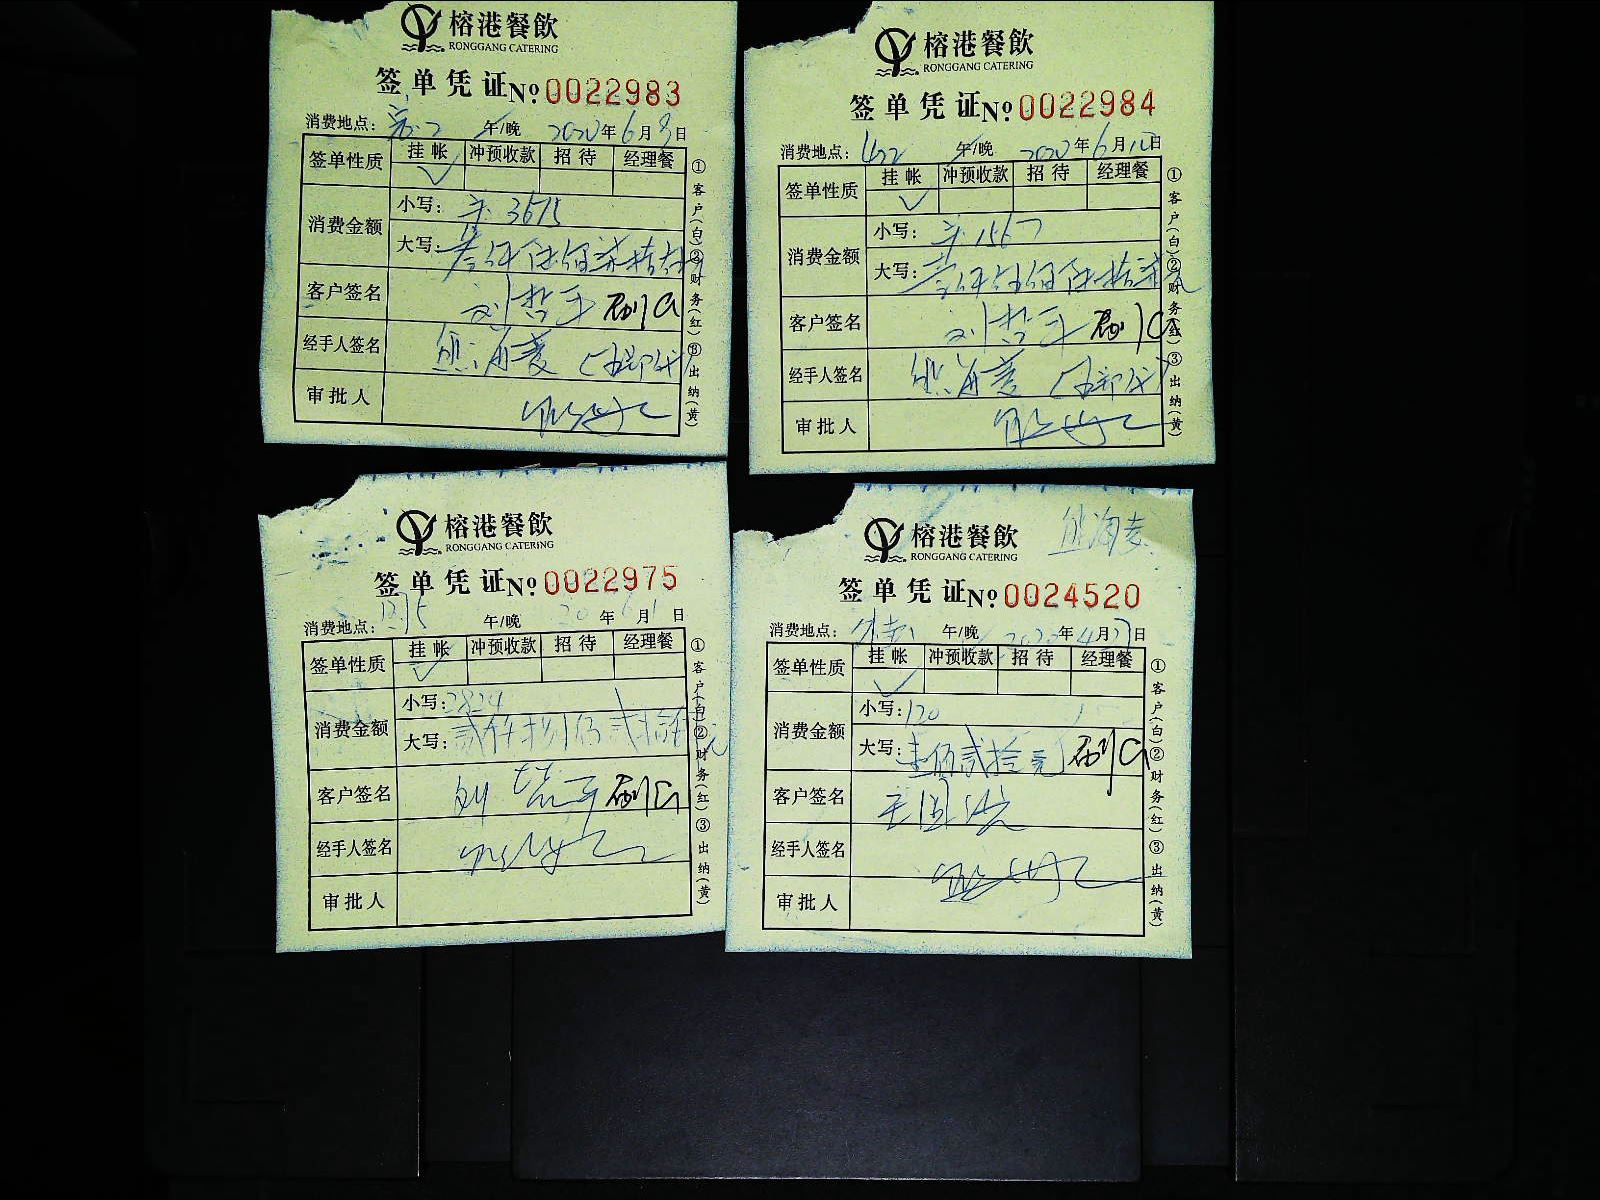 榕港餐飲
RONGGANG CATERING
签单凭证 No. 0022983
消费地点： 午/晚 2020年6月9日
签单性质 挂帐 冲预收款 招待 经理餐
消费金额 小写： 3675
大写：叁仟陆佰柒拾
客户签名 刘哲平
经手人签名 熊海麦
审批人
①客户(白)②财务(红)③出纳(黄)
榕港餐飲
RONGGANG CATERING
签单凭证 No. 0022984
消费地点： 午/晚 2020年6月10日
签单性质 挂帐 冲预收款 招待 经理餐
消费金额 小写： 1567
大写：
客户签名 刘哲平
经手人签名 熊海麦
审批人
①客户(白)②财务(红)③出纳(黄)
榕港餐飲
RONGGANG CATERING
签单凭证 No. 0022975
消费地点： 午/晚 20 年6月1日
签单性质 挂帐 冲预收款 招待 经理餐
消费金额 小写：2824
大写：贰仟捌佰贰拾肆元
客户签名
经手人签名
审批人
①客户(白)②财务(红)③出纳(黄)
榕港餐飲
RONGGANG CATERING
熊海麦
签单凭证 No. 0024520
消费地点： 午/晚 2020年4月27日
签单性质 挂帐 冲预收款 招待 经理餐
消费金额 小写：120
大写：壹佰贰拾元
客户签名
经手人签名
审批人
①客户(白)②财务(红)③出纳(黄)